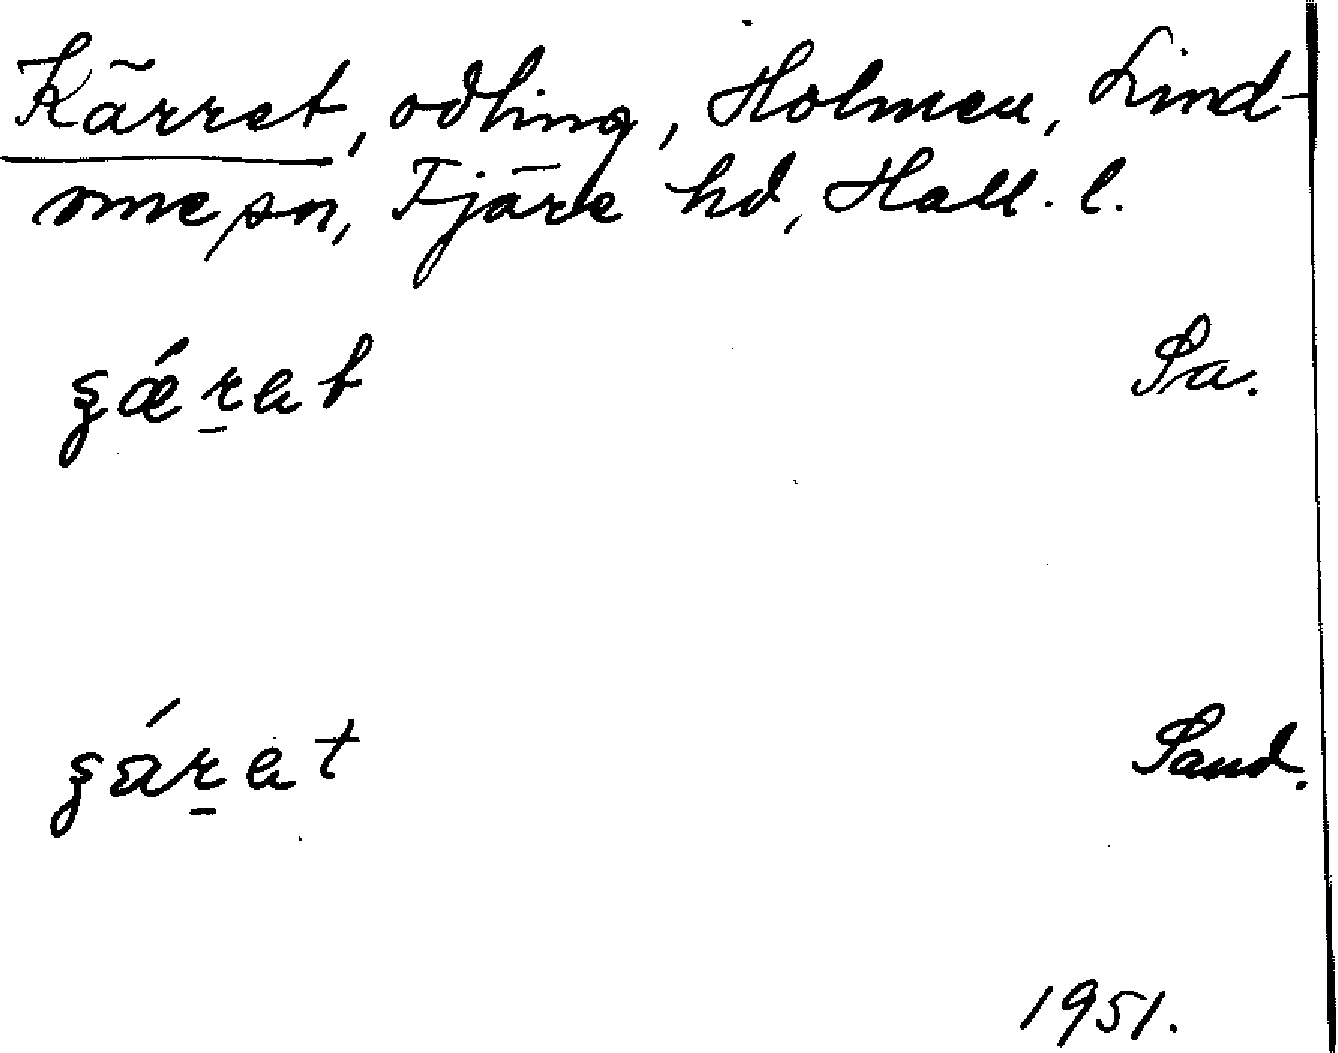 Kärret, odling, Holmen, Lind-
ome sn, Fjäre hd, Hall. l.
Sa.
Sand.
1951.